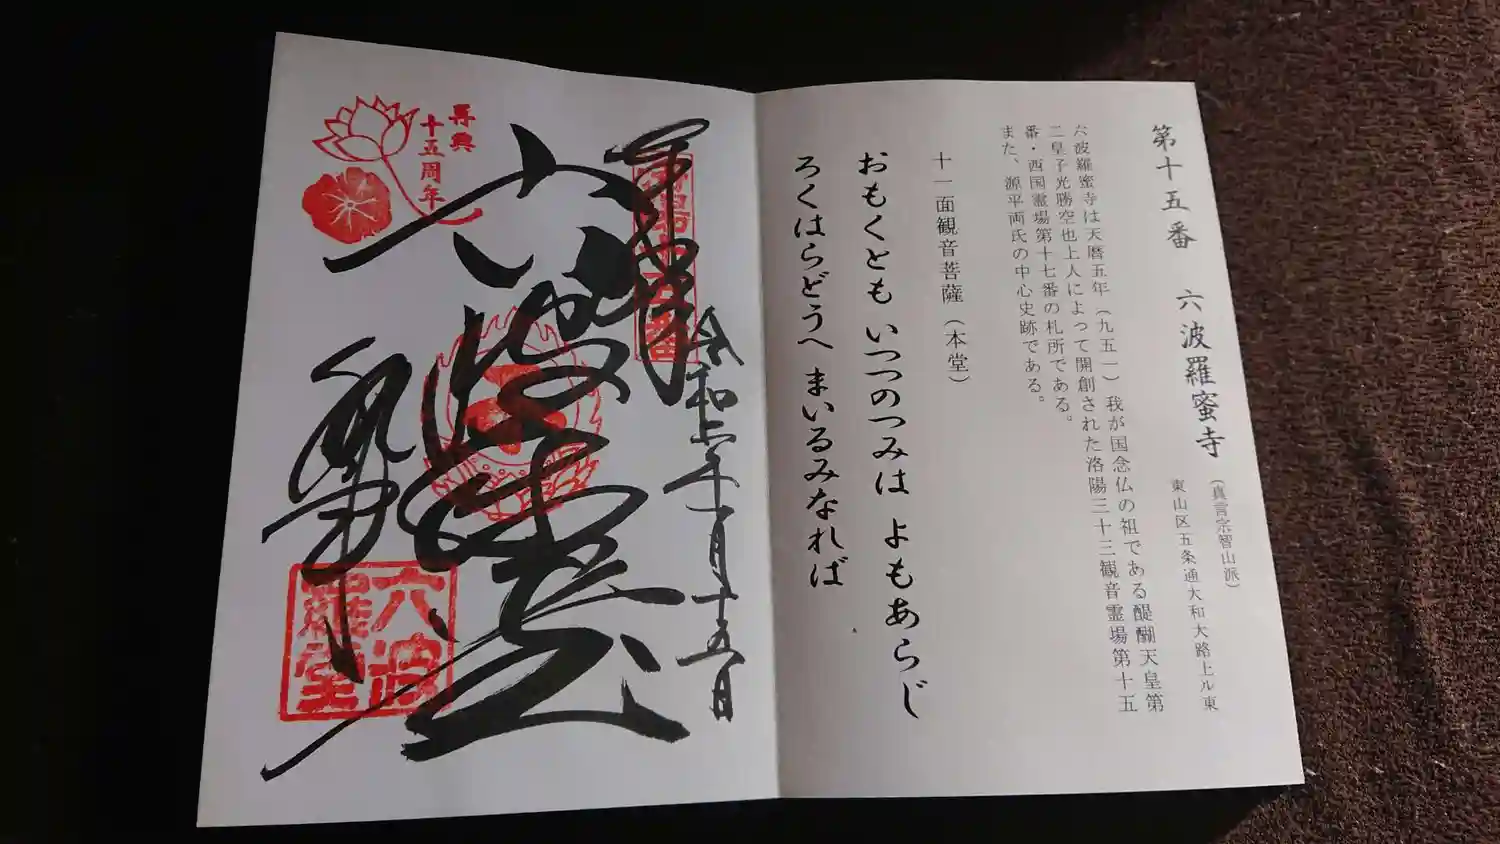 第十五番　六波羅蜜寺
（真言宗智山派）
東山区五条通大和大路上ル東
六波羅蜜寺は天暦五年（九五一）我が国念仏の祖である醍醐天皇第
二皇子光勝空也上人によって開創された洛陽三十三観音霊場第十五
番・西国霊場第十七番の札所である。
また、源平両氏の中心史跡である。
十一面観音菩薩（本堂）
おもくとも いつつのつみは よもあらじ
ろくはらどうへ まいるみなれば
令和六年一月十五日
再興
十五周年
六波
羅堂